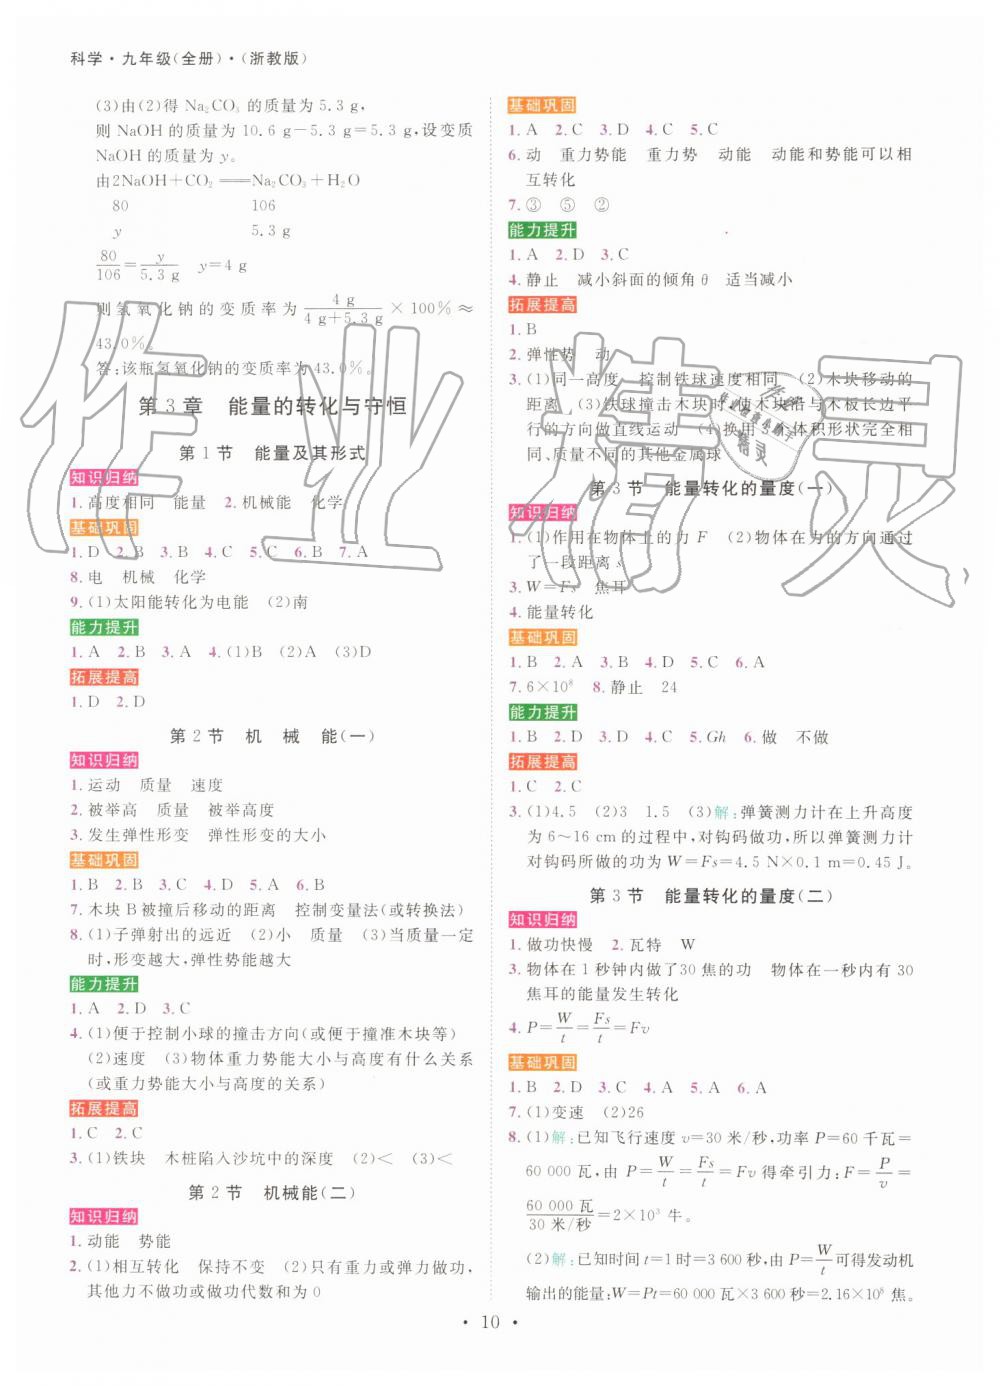 科学·九年级(全册)·(浙教版)
(3)由(2)得 Na₂CO₃ 的质量为 5.3 g,
则 NaOH 的质量为 10.6 g－5.3 g＝5.3 g,设变质
NaOH 的质量为 y。
由2NaOH＋CO₂ ══ Na₂CO₃＋H₂O
80 106
y 5.3 g
80/106＝y/5.3 g y＝4 g
则氢氧化钠的变质率为 4 g/(4 g＋5.3 g) ×100%≈
43.0%。
答:该瓶氢氧化钠的变质率为 43.0%。
第 3 章 能量的转化与守恒
第 1 节 能量及其形式
知识归纳
1. 高度相同 能量 2. 机械能 化学
基础巩固
1. D 2. B 3. B 4. C 5. C 6. B 7. A
8. 电 机械 化学
9. (1)太阳能转化为电能 (2)南
能力提升
1. A 2. B 3. A 4. (1)B (2)A (3)D
拓展提高
1. D 2. D
第 2 节 机 械 能(一)
知识归纳
1. 运动 质量 速度
2. 被举高 质量 被举高度
3. 发生弹性形变 弹性形变的大小
基础巩固
1. B 2. B 3. C 4. D 5. A 6. B
7. 木块 B 被撞后移动的距离 控制变量法(或转换法)
8. (1)子弹射出的远近 (2)小 质量 (3)当质量一定
时,形变越大,弹性势能越大
能力提升
1. A 2. D 3. C
4. (1)便于控制小球的撞击方向(或便于撞准木块等)
(2)速度 (3)物体重力势能大小与高度有什么关系
(或重力势能大小与高度的关系)
拓展提高
1. C 2. C
3. (1)铁块 木桩陷入沙坑中的深度 (2)< (3)<
第 2 节 机械能(二)
知识归纳
1. 动能 势能
2. (1)相互转化 保持不变 (2)只有重力或弹力做功,
其他力不做功或做功代数和为 0
基础巩固
1. A 2. C 3. D 4. C 5. C
6. 动 重力势能 重力势 动能 动能和势能可以相
互转化
7. ③ ⑤ ②
能力提升
1. A 2. D 3. C
4. 静止 减小斜面的倾角 θ 适当减小
拓展提高
1. B
2. 弹性势 动
3. (1)同一高度 控制铁球速度相同 (2)木块移动的
距离 (3)铁球撞击木块时,使木块沿与木板长边平
行的方向做直线运动 (4)换用与体积形状完全相
同、质量不同的其他金属球
第 3 节 能量转化的量度(一)
知识归纳
1. (1)作用在物体上的力 F (2)物体在力的方向通过
了一段距离 s
3. W＝Fs 焦耳
4. 能量转化
基础巩固
1. B 2. A 3. B 4. D 5. C 6. A
7. 6×10⁸ 8. 静止 24
能力提升
1. B 2. D 3. D 4. C 5. Gh 6. 做 不做
拓展提高
1. C 2. C
3. (1)4.5 (2)3 1.5 (3)解:弹簧测力计在上升高度
为 6～16 cm 的过程中,对钩码做功,所以弹簧测力计
对钩码所做的功为 W＝Fs＝4.5 N×0.1 m＝0.45 J。
第 3 节 能量转化的量度(二)
知识归纳
1. 做功快慢 2. 瓦特 W
3. 物体在 1 秒钟内做了30 焦的功 物体在一秒内有 30
焦耳的能量发生转化
4. P＝W/t＝Fs/t＝Fv
基础巩固
1. B 2. D 3. C 4. A 5. A 6. A
7. (1)变速 (2)26
8. (1)解:已知飞行速度 v＝30 米/秒,功率 P＝60 千瓦＝
60 000 瓦,由 P＝W/t＝Fs/t＝Fv 得牵引力:F＝P/v＝
60 000 瓦/30 米/秒＝2×10³ 牛。
(2)解:已知时间 t＝1 时＝3 600 秒,由 P＝W/t可得发动机
输出的能量:W＝Pt＝60 000 瓦×3 600 秒＝2.16×10⁸ 焦。
·10·
作业精灵